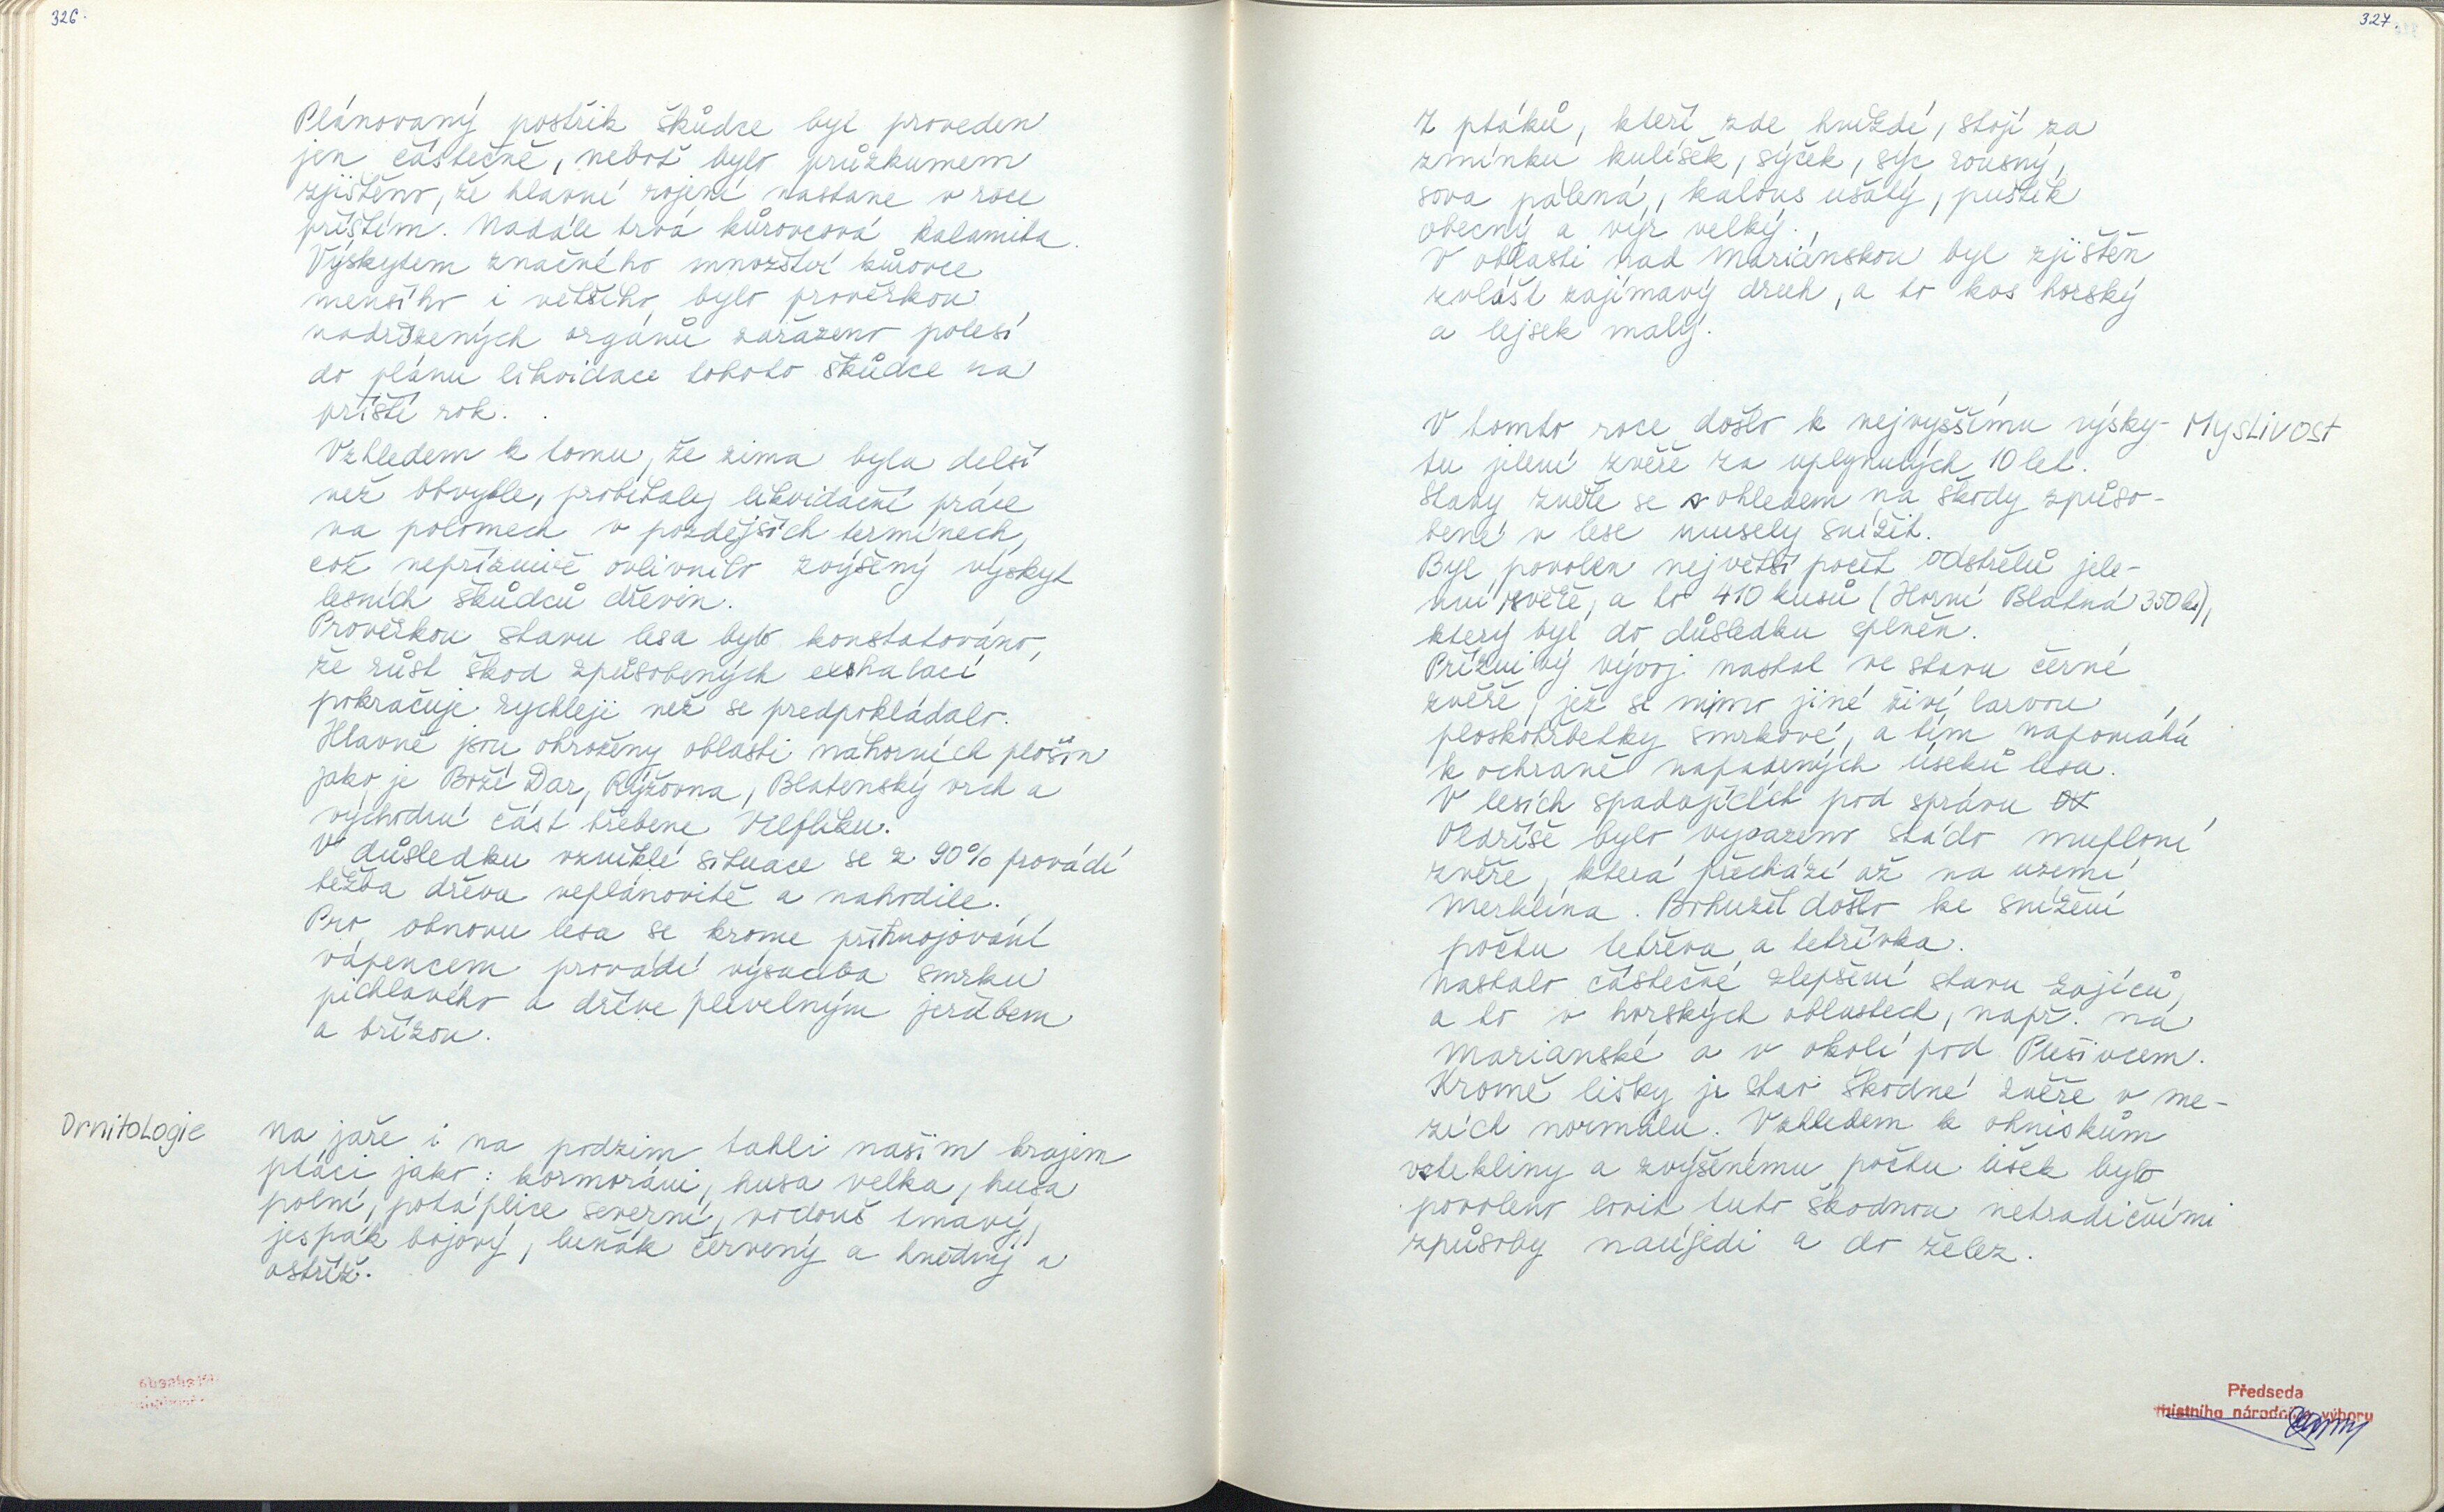 326.
Plánovaný postřik škůdce byl proveden
jen částečně, neboť bylo průzkumem
zjištěno, že hlavní rojení nastane v roce
příštím. Nadále trvá kůrovcová kalamita.
Výskytem značného množství kůrovce
menšího i většího, bylo prověrkou
nadřízených orgánů zařazeno polesí
do plánu likvidace tohoto škůdce na
příští rok.
Vzhledem k tomu, že zima byla delší
než obvykle, probíhaly likvidační práce
na polomech v pozdějších termínech,
což nepříznivě ovlivnilo zvýšený výskyt
lesních škůdců dřevin.
Prověrkou stavu lesa bylo konstatováno,
že růst škod způsobených exhalací
pokračuje rychleji než se předpokládalo.
Hlavně jsou ohroženy oblasti náhorních plošin
jako je Boží Dar, Rýžovna, Blatenský vrch a
východní část hřebene Vlčího.
V důsledku vzniklé situace se z 90% provádí
těžba dřeva neplánovitě a nahodile.
Pro obnovu lesa se krome přihnojování
vápencem provádí výsadba smrku
pichlavého a dříve plevelným jeřábem
a břízou.
Ornitologie
Na jaře i na podzim táhli naším krajem
ptáci jako: kormoráni, husa velká, husa
polní, potáplice severní, vodouš tmavý,
jespák bojový, luňák červený a hnědý a
ostříž.
327.
Z ptáků, kteří zde hnízdí, stojí za
zmínku kulíšek, sýček, sýc rousný,
sova pálená, kalous ušatý, puštík
obecný a výr velký.
V oblasti nad Mariánskou byl zjištěn
zvlášť zajímavý druh, a to kos horský
a lejsek malý.
V tomto roce došlo k nejvyššímu výsky-
Myslivost
tu jelení zvěře za uplynulých 10 let.
Stavy zvěře se s ohledem na škody způso-
bené v lese musely snížit.
Byl povolen největší počet odstřelů jele-
ní zvěře, a to 410 kusů (Horní Blatná 350 ks),
který byl do důsledku splněn.
Příznivý vývoj nastal ve stavu černé
zvěře, jež se mimo jiné živí larvou
ploskohřbetky smrkové, a tím napomáhá
k ochraně napadených úseků lesa.
V lesích spadajících pod správu
Oldříše bylo vysazeno stádo mufloní
zvěře, která přechází až na území
Merklína. Bohužel došlo ke snížení
počtu tetřeva a tetřívka.
Nastalo částečné zlepšení stavu zajíců,
a to v horských oblastech, např. na
Marianské a v okolí pod Plešivcem.
Kromě lišky je stav škodné zvěře v me-
zích normálu. Vzhledem k ohniskům
vztekliny a zvýšenému počtu lišek bylo
povoleno lovit tuto škodnou netradičními
způsoby naújedi a do želez.
Předseda
místního národního výboru